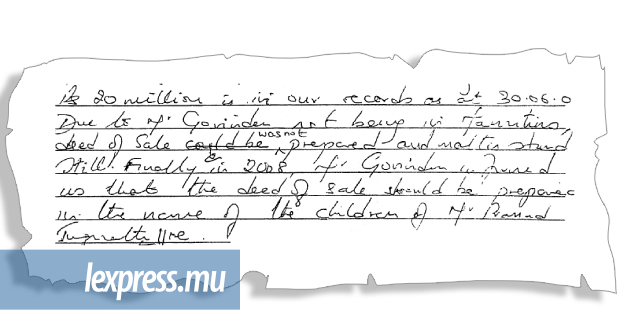 Rs 20 million is in our records as at 30.06.0
Due to Mr Govinden not being in Mauritius,
deed of Sale could be was not prepared and matter stand
still. Finally in 2008, Mr Govinden informed
us that the deed of sale should be prepared
in the name of the children of Mr
lexpress.mu